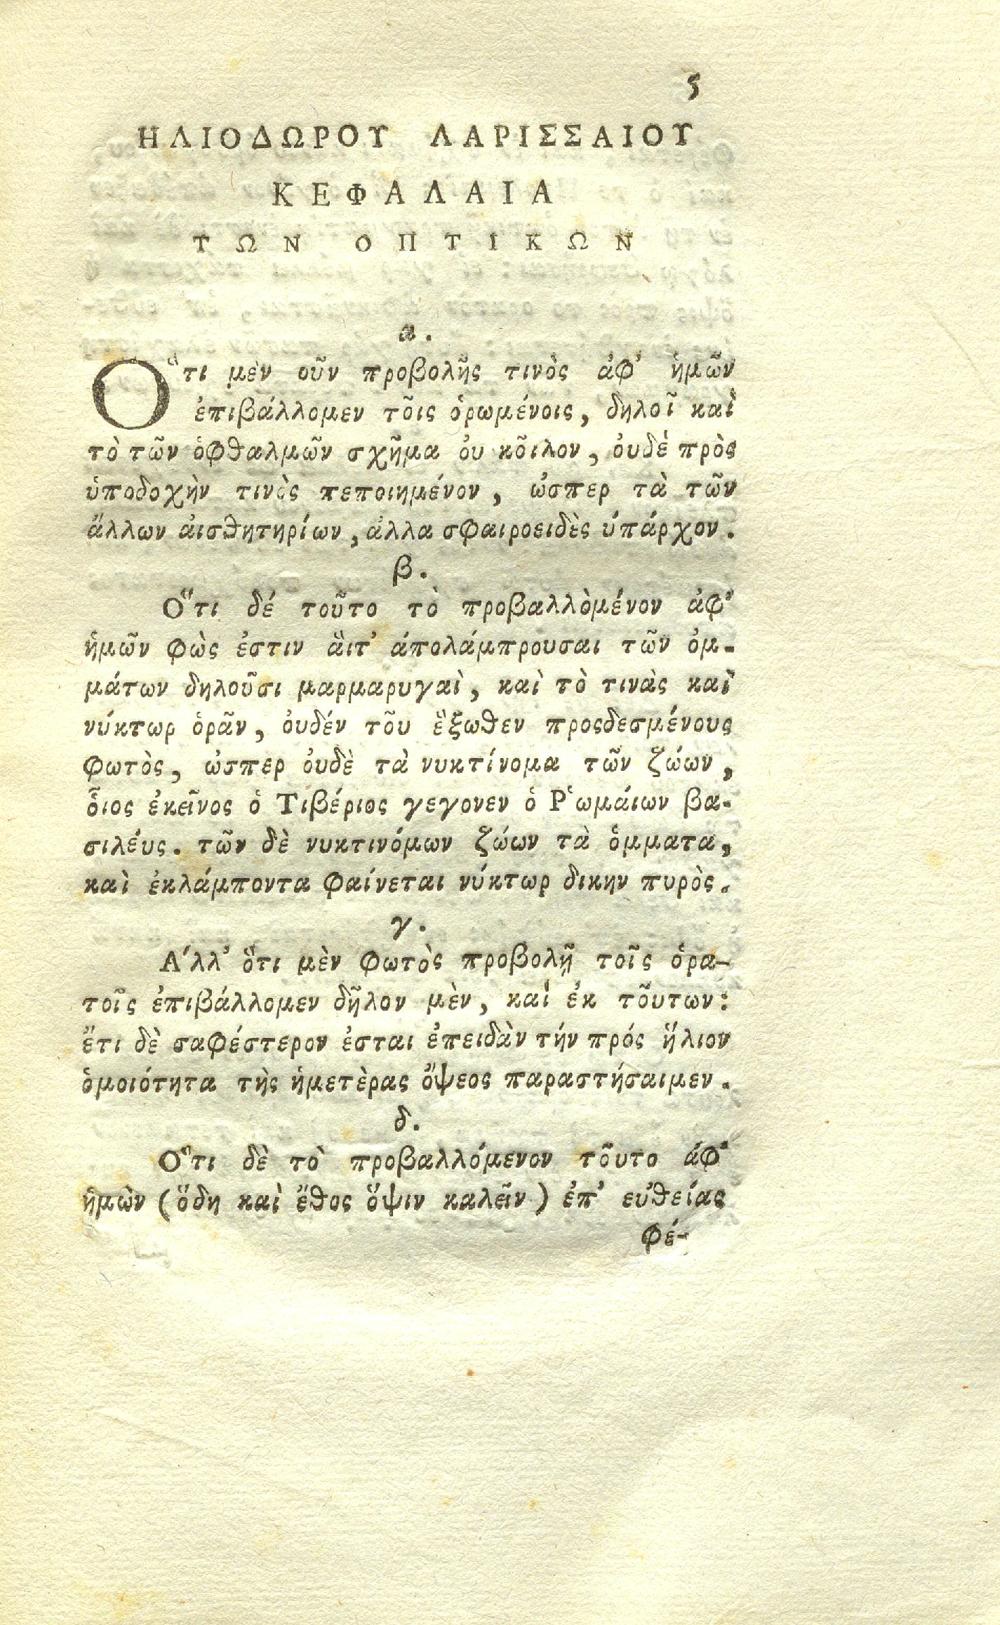 5
ΗΛΙΟΔΩΡΟΥ ΛΑΡΙΣΣΑΙΟΥ
ΚΕΦΑΛΑΙΑ
ΤΩΝ ΟΠΤΙΚΩΝ
α.
Ὅτι μὲν οῦν προβολῆς τινὸς ἀφ’ ἡμῶν
ἐπιβάλλομεν τõις ὁρωμένοις, δηλοῖ καὶ
τὸ τῶν ὀφθαλμῶν σχῆμα ὀυ κõιλον, ὀυδὲ πρὸς
ὑποδοχὴν τινὸς πεποιημένον, ὡσπερ τὰ τῶν
ἄλλων ἀισθητηρίων, ἀλλα σφαιροειδὲς ὑπάρχον.
β.
Ὅτι δέ τοῦτο τὸ προβαλλὸμένον ἀφ’
ἡμῶν φὼς ἐστιν ἅιτ’ ἀπολάμπρουσαι τῶν ὀμ-
μάτων δηλοῦσι μαρμαρυγαὶ, καὶ τὸ τινὰς καὶ
νύκτωρ ὁρᾶν, ὀυδέν τõυ ἔξωθεν προςδεσμένους
φωτὸς, ὡσπερ ὀυδὲ τὰ νυκτίνομα τῶν ζώων,
ὅιος ἐκεῖνος ὁ Τιβέριος γεγονεν ὁ Ῥωμάιων βα-
σιλέυς. τῶν δὲ νυκτινόμων ζώων τὰ ὀμματα,
καὶ ἐκλάμποντα φαίνεται νύκτωρ δικην πυρὸς.
γ.
Ἀλλ’ ὅτι μὲν φωτὸς προβολῇ τοῖς ὁρα-
τοῖς ἐπιβάλλομεν δῆλον μὲν, καὶ ἐκ τõυτων:
ἔτι δὲ σαφέστερον ἐσται ἐπειδὰν τήν πρός ἥλιον
ὁμοιότητα τὴς ἡμετὲρας ὄψεος παραστήσαιμεν.
δ.
Ὅτι δὲ τὸ προβαλλόμενον τõυτο ἀφ’
ἡμὼν (ὅδη καὶ ἔθος ὄψιν καλεῖν) ἐπ’ ευθείας
φέ-